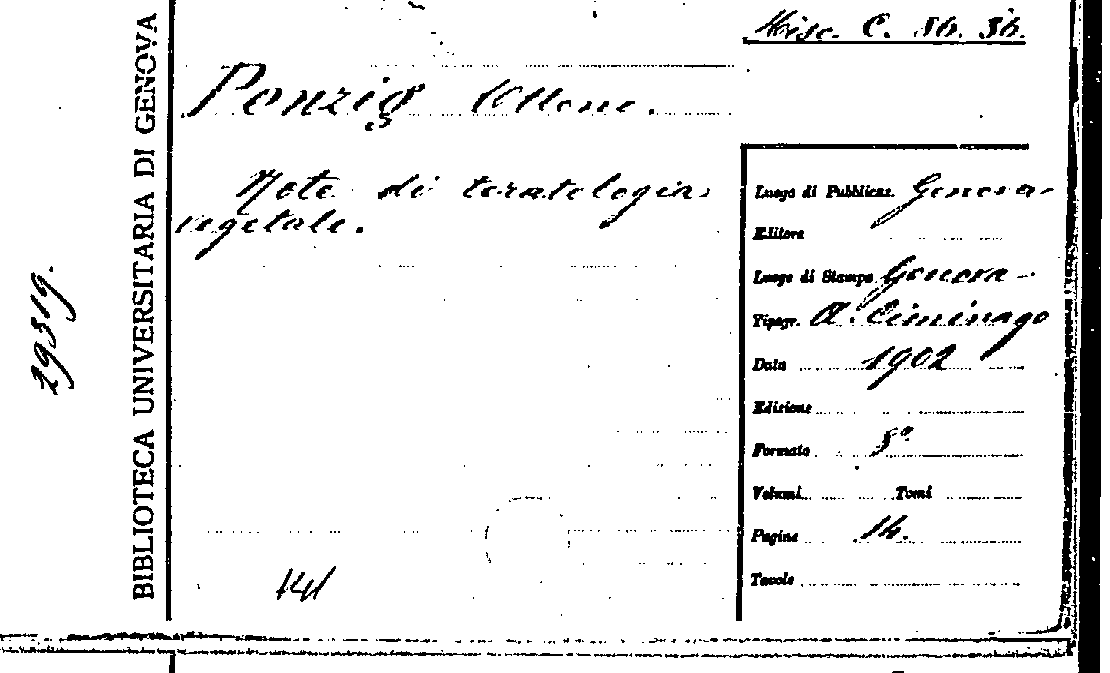 Misc. C. 56. 36.
Penzig Ottone.
Note di teratologia
vegetale.
Luogo di Pubblicaz. Genova
Editore
Luogo di Stampa Genova
Tipogr. A. Ciminago
Data 1902
Edizione
Formato 8°
Volumi Tomi
Pagine 14.
Tavole
141
BIBLIOTECA UNIVERSITARIA DI GENOVA
29319.